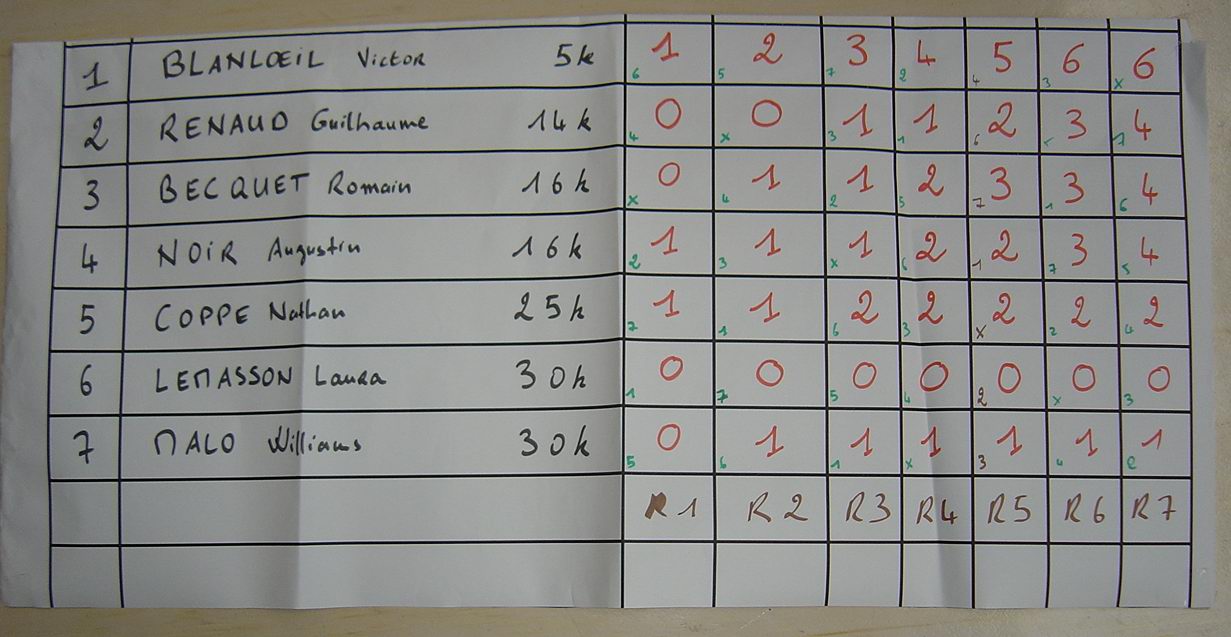 1 BLANLOEIL Victor 5k 6 1 5 2 7 3 2 4 4 5 3 6 x 6
2 RENAUD Guilhaume 14k 4 0 x 0 3 1 1 1 6 2 5 3 7 4
3 BECQUET Romain 16k x 0 4 1 2 1 5 2 7 3 1 3 6 4
4 NOIR Augustin 16k 2 1 3 1 x 1 6 2 1 2 7 3 5 4
5 COPPE Nathan 25k 7 1 1 1 6 2 3 2 x 2 2 2 4 2
6 LEMASSON Laura 30k 1 0 7 0 5 0 4 0 2 0 x 0 3 0
7 MALO Williams 30k 5 0 6 1 1 1 x 1 3 1 4 1 2 1
R1 R2 R3 R4 R5 R6 R7